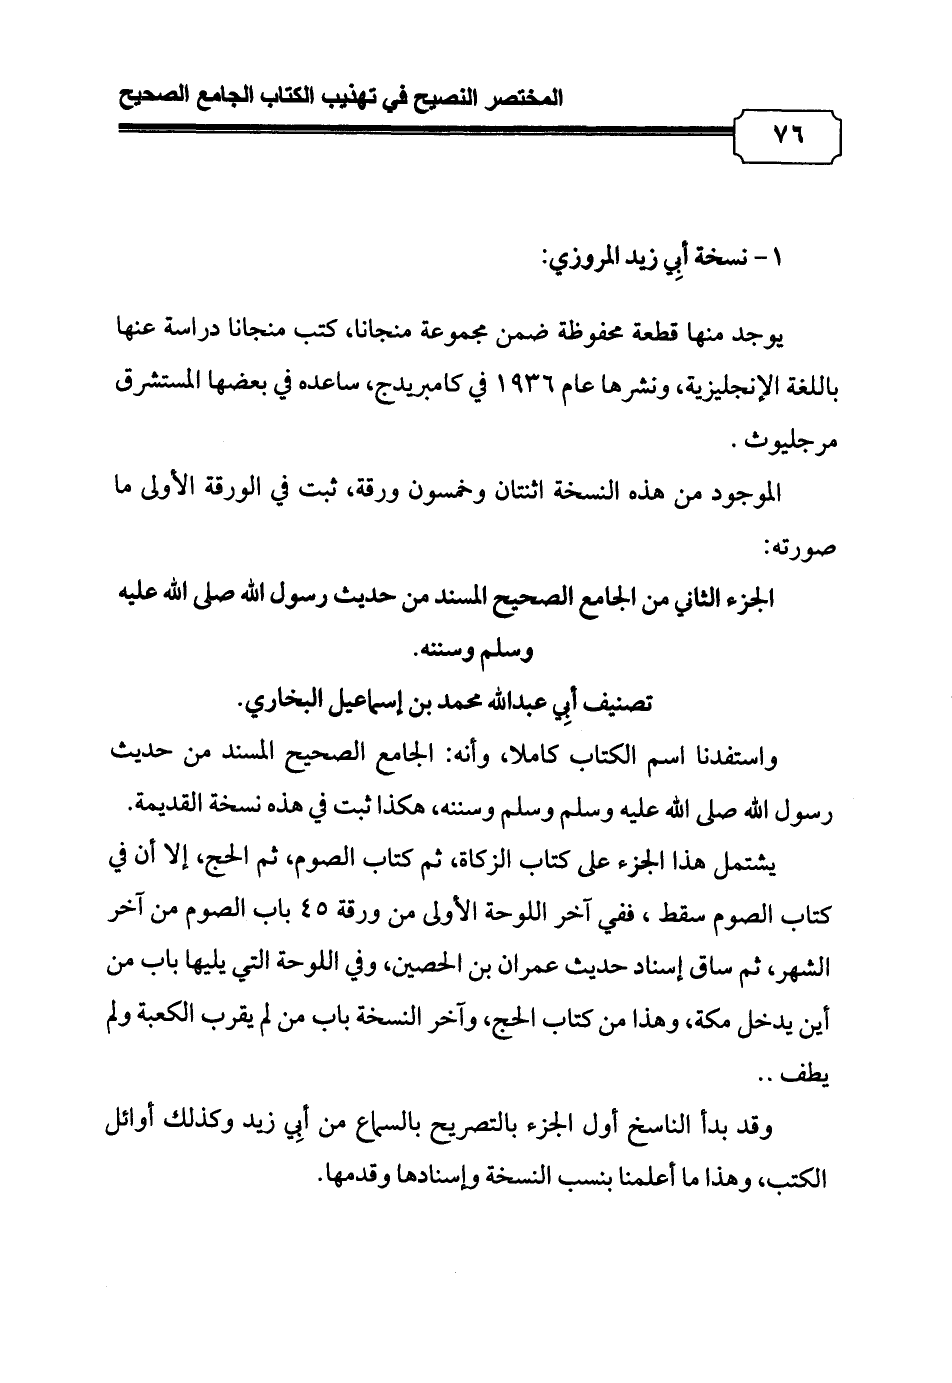 المختصر النصيح في تهذيب الكتاب الجامع الصحيح
٧٦
١- نسخة أبي زيد المروزي:
يوجد منها قطعة محفوظة ضمن مجموعة منجانا، كتب منجانا دراسة عنها
باللغة الإنجليزية، ونشرها عام ١٩٣٦ في كامبريدج، ساعده في بعضها المستشرق
مرجليوث .
الموجود من هذه النسخة اثنتان وخمسون ورقة، ثبت في الورقة الأولى ما
صورته:
الجزء الثاني من الجامع الصحيح المسند من حديث رسول الله صلى الله عليه
وسلم وسننه.
تصنيف أبي عبدالله محمد بن إسماعيل البخاري.
واستفدنا اسم الكتاب كاملا، وأنه: الجامع الصحيح المسند من حديث
رسول الله صلى الله عليه وسلم وسلم وسننه، هكذا ثبت في هذه نسخة القديمة.
يشتمل هذا الجزء على كتاب الزكاة، ثم كتاب الصوم، ثم الحج، إلا أن في
كتاب الصوم سقط ، ففي آخر اللوحة الأولى من ورقة ٤٥ باب الصوم من آخر
الشهر، ثم ساق إسناد حديث عمران بن الحصين، وفي اللوحة التي يليها باب من
أين يدخل مكة، وهذا من كتاب الحج، وآخر النسخة باب من لم يقرب الكعبة ولم
يطف ..
وقد بدأ الناسخ أول الجزء بالتصريح بالسماع من أبي زيد وكذلك أوائل
الكتب، وهذا ما أعلمنا بنسب النسخة وإسنادها وقدمها.